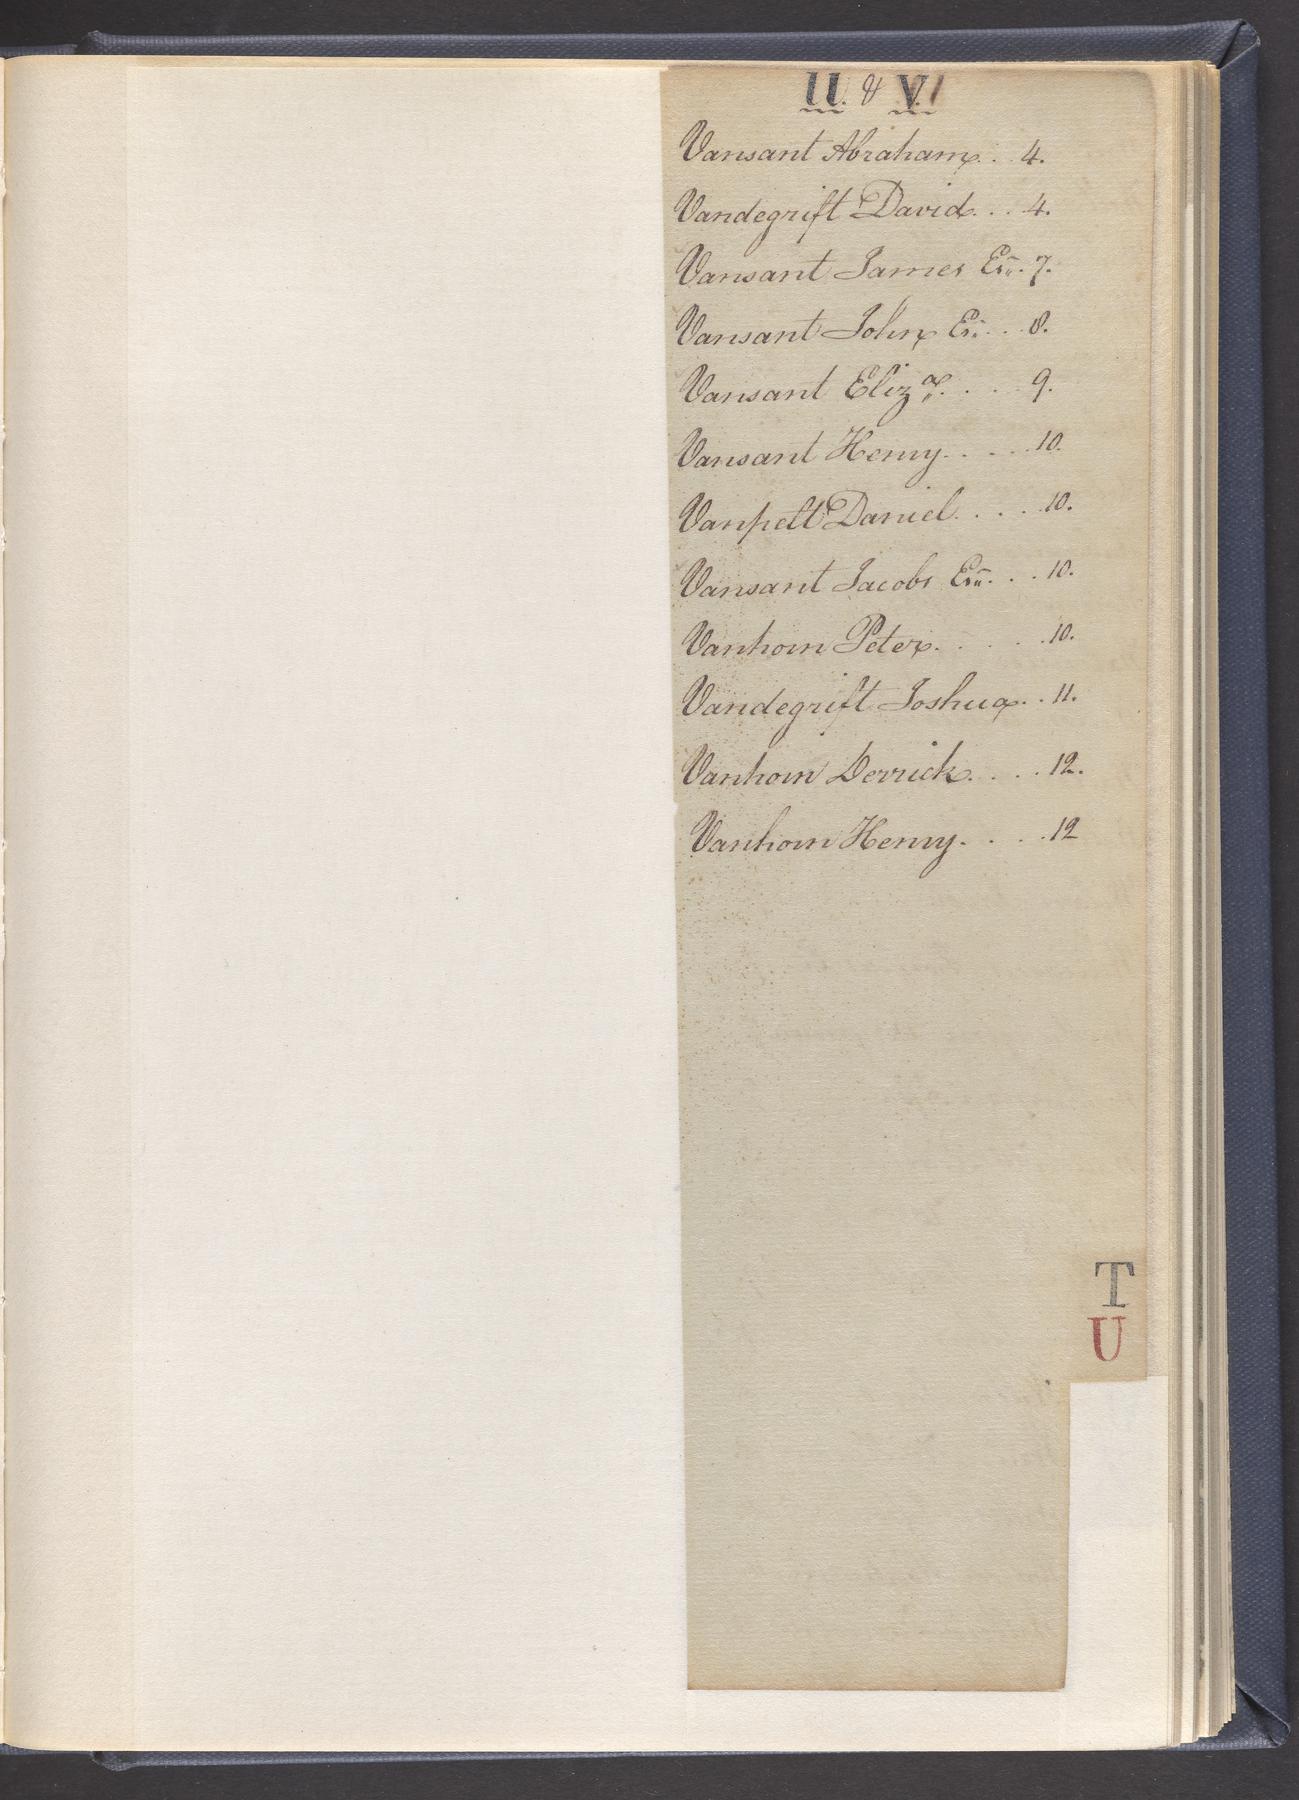 U. & V.
Vansant Abraham . . 4.
Vandegrift David . . . 4.
Vansant James Es:. 7.
Vansant John Es: . . 8.
Vansant Eliza. . . . 9.
Vansant Henry . . . . . 10.
Vanpelt Daniel . . . . 10.
Vansant Jacobs Es:. . . 10.
Vanhorn Peter . . . . 10.
Vandegrift Joshua . . 11.
Vanhorn Derrick . . . . 12.
Vanhorn Henry . . . . 12
T
U